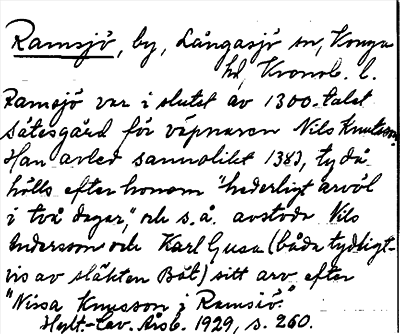 Ramsjö, by, Långasjö sn, Konga
hd, Kronob. l.
Ramsjö var i slutet av 1300-talet
sätesgård för väpnaren Nils Knutsson.
Han avled sannolikt 1383, ty då
hölls efter honom "hederligt arvöl
i två dagar", och s. å. avstodo Nils
Andersson och Karl Gusa (båda tydligt-
vis av släkten Båt) sitt arv efter
"Nissa Knusson i Ramsiö."
Hylt.-Cav. Årsb. 1929, s. 260.